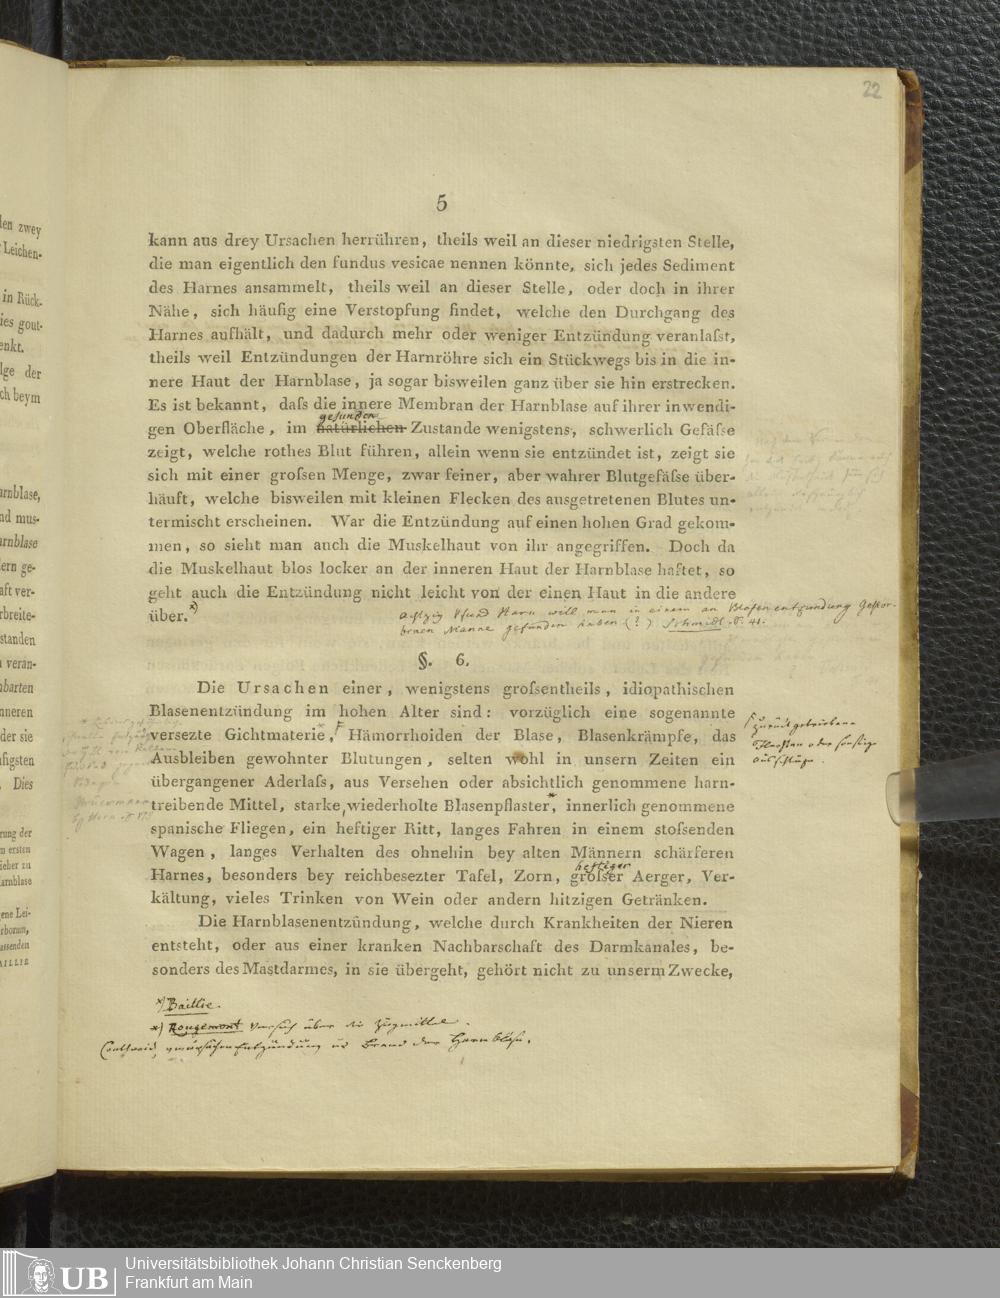 22
5
kann aus drey Ursachen herrühren, theils weil an dieser niedrigsten Stelle,
die man eigentlich den fundus vesicae nennen könnte, sich jedes Sediment
des Harnes ansammelt, theils weil an dieser Stelle, oder doch in ihrer
Nähe, sich häufig eine Verstopfung findet, welche den Durchgang des
Harnes aufhält, und dadurch mehr oder weniger Entzündung veranlaſst,
theils weil Entzündungen der Harnröhre sich ein Stückwegs bis in die in-
nere Haut der Harnblase, ja sogar bisweilen ganz über sie hin erstrecken.
Es ist bekannt, daſs die innere Membran der Harnblase auf ihrer inwendi-
gesunden
gen Oberfläche, im natürlichen Zustande wenigstens, schwerlich Gefäſse
zeigt, welche rothes Blut führen, allein wenn sie entzündet ist, zeigt sie
sich mit einer groſsen Menge, zwar feiner, aber wahrer Blutgefäſse über-
häuft, welche bisweilen mit kleinen Flecken des ausgetretenen Blutes un-
termischt erscheinen. War die Entzündung auf einen hohen Grad gekom-
men, so sieht man auch die Muskelhaut von ihr angegriffen. Doch da
die Muskelhaut blos locker an der inneren Haut der Harnblase haftet, so
geht auch die Entzündung nicht leicht von der einen Haut in die andere
über. *)
achtzig Pfund Harn will man in einem an Blasenentzündung gestor-
benen Manne gefunden haben (?) Schmidt S. 41.
§. 6.
Die Ursachen einer, wenigstens groſsentheils, idiopathischen
Blasenentzündung im hohen Alter sind: vorzüglich eine sogenannte
versezte Gichtmaterie, Hämorrhoiden der Blase, Blasenkrämpfe, das
Ausbleiben gewohnter Blutungen, selten wohl in unsern Zeiten ein
übergangener Aderlaſs, aus Versehen oder absichtlich genommene harn-
treibende Mittel, starke, wiederholte Blasenpflaster*, innerlich genommene
spanische Fliegen, ein heftiger Ritt, langes Fahren in einem stoſsenden
Wagen, langes Verhalten des ohnehin bey alten Männern schärferen
heftiger
Harnes, besonders bey reichbesezter Tafel, Zorn, groſser Aerger, Ver-
kältung, vieles Trinken von Wein oder andern hitzigen Getränken.
Die Harnblasenentzündung, welche durch Krankheiten der Nieren
entsteht, oder aus einer kranken Nachbarschaft des Darmkanales, be-
sonders des Mastdarmes, in sie übergeht, gehört nicht zu unserm Zwecke,
zurückgetriebene
Flechten oder sonstige
Ausschläge.
*) Baillie.
*) Rougemont Versuch über die Zugmittel.
Entzündung u Brand der Harnblase.
den zwey
Leichen-
in Rück-
ies gout-
enkt.
lge der
ch beym
arnblase,
nd mus-
arnblase
ern ge-
aft ver-
rbreite-
standen
veran-
nbarten
nneren
der sie
ufigsten
Dies
rung der
n ersten
ieber zu
arnblase
ene Lei-
rborum,
assenden
AILLIE
UB
Universitätsbibliothek Johann Christian Senckenberg
Frankfurt am Main